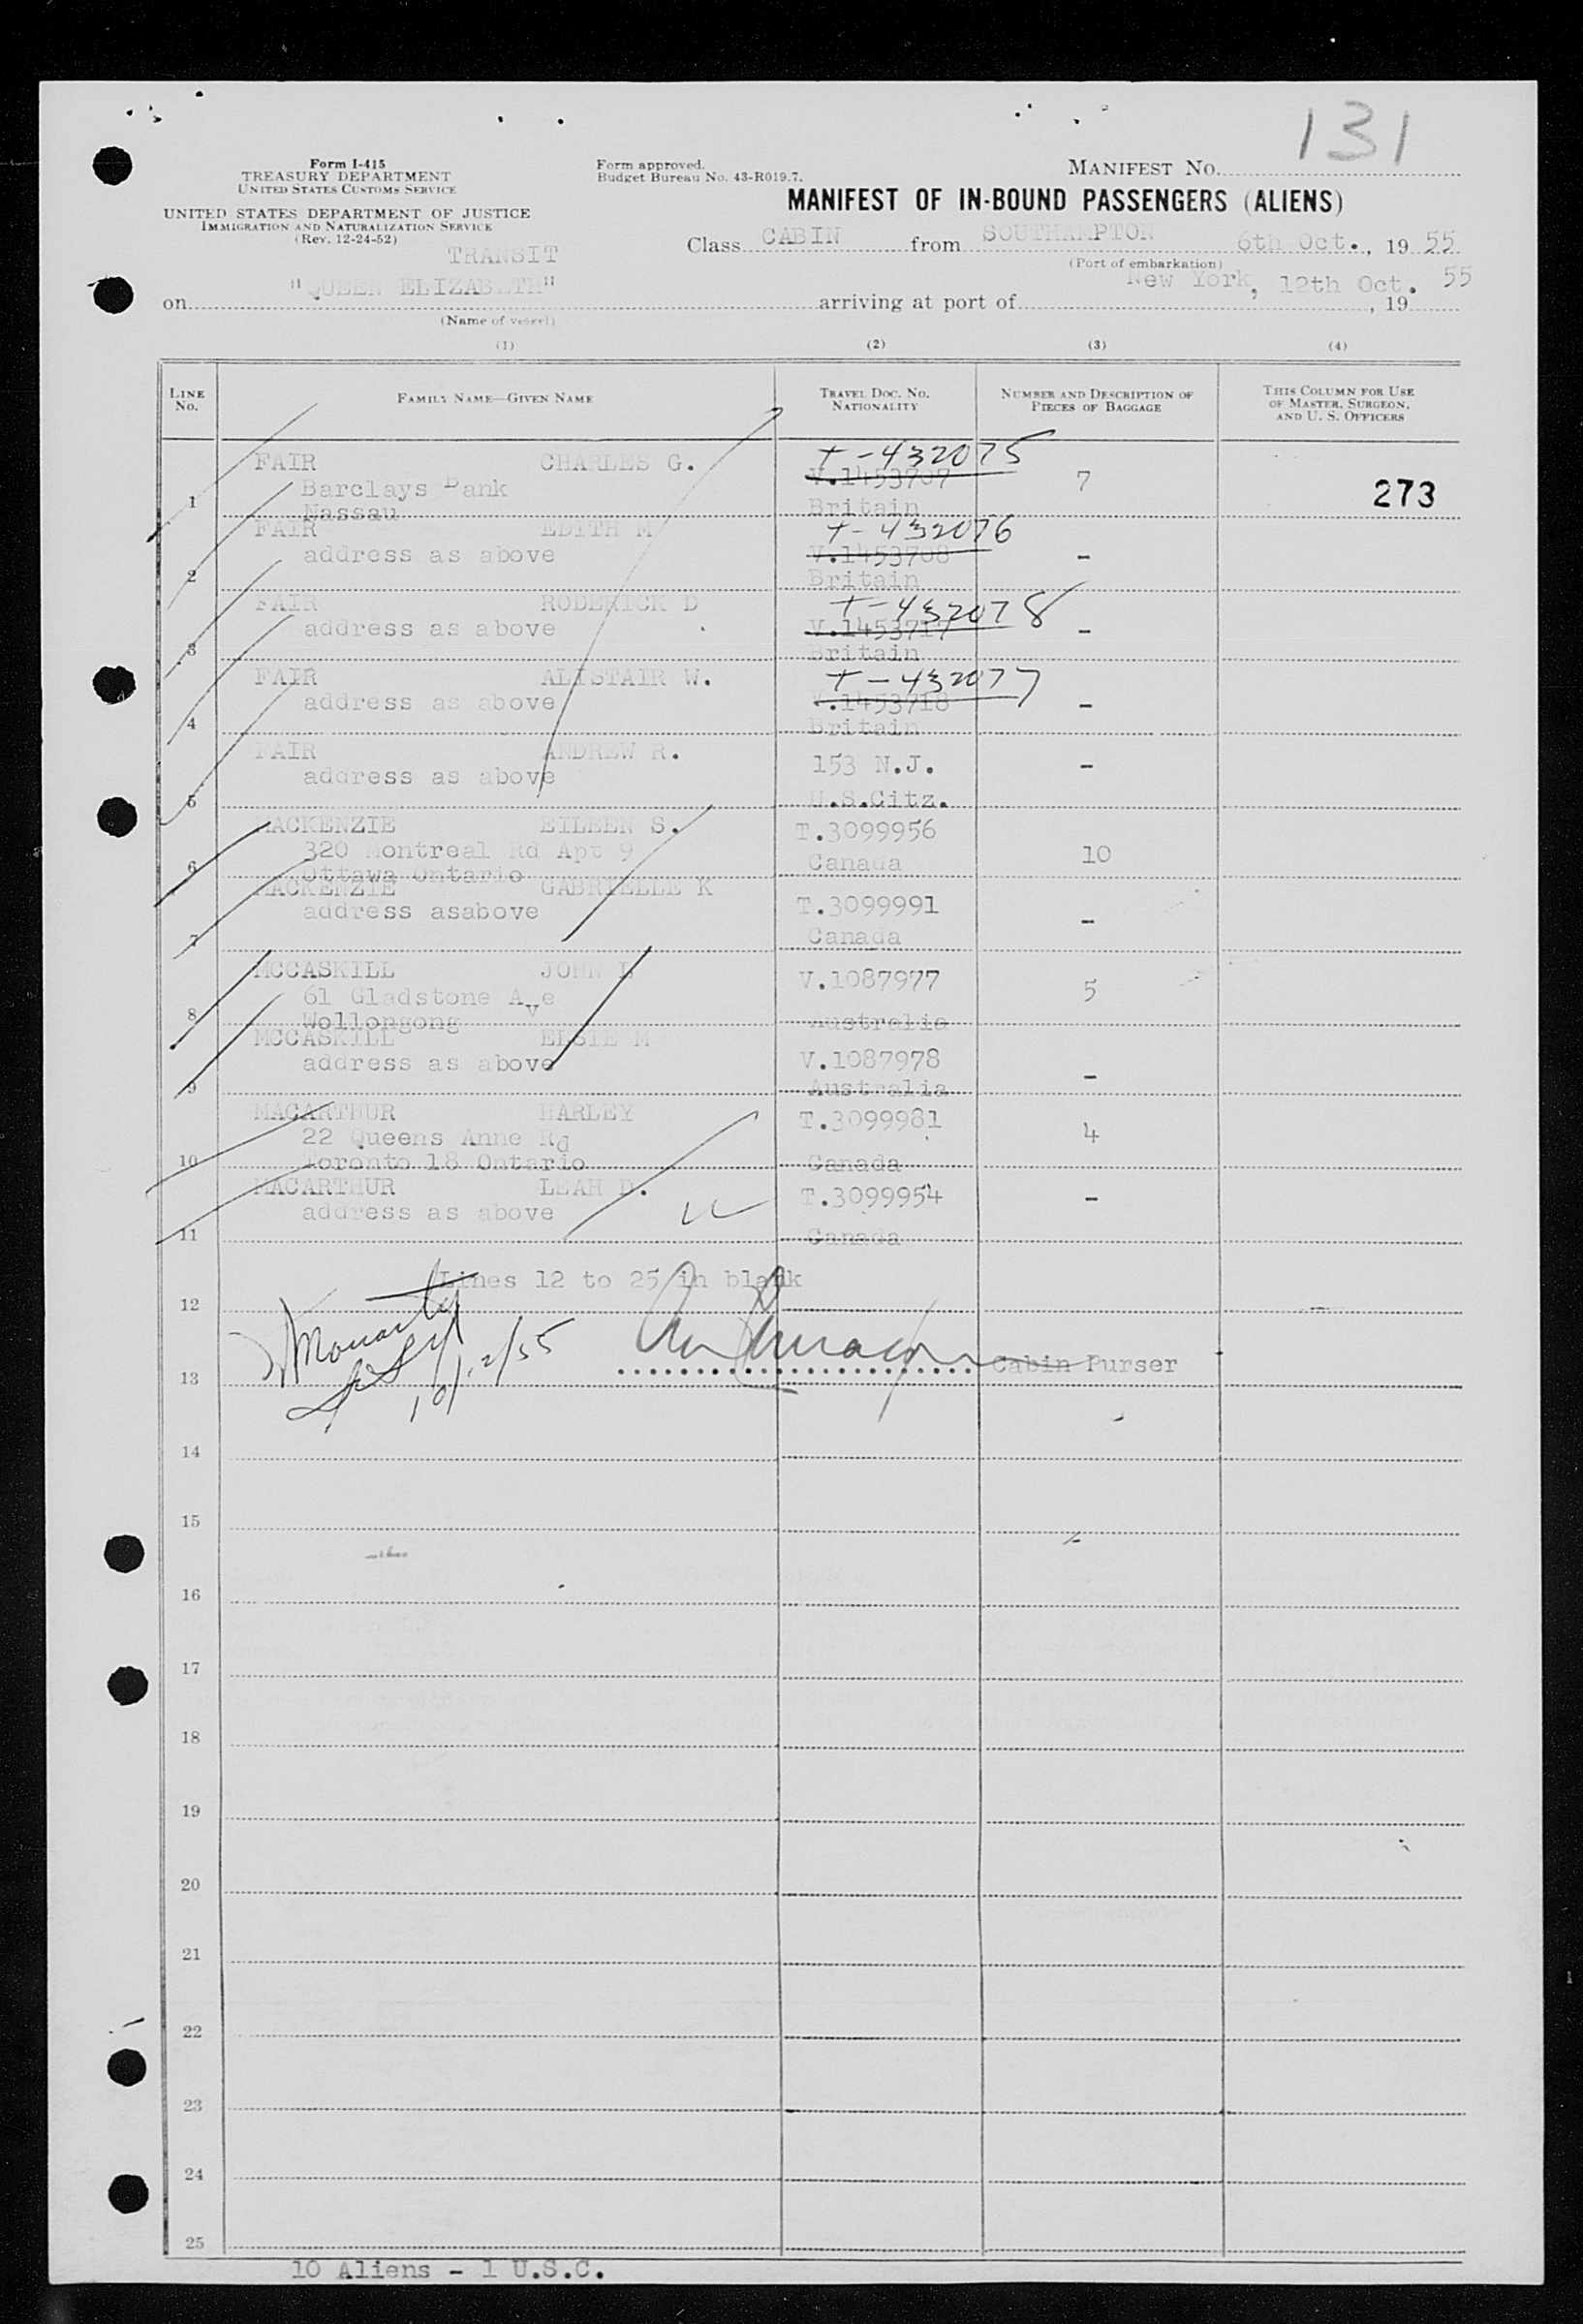 131
Form I-415
TREASURY DEPARTMENT
UNITED STATES CUSTOMS SERVICE
Form approved.
Budget Bureau No. 43-R019.7.
MANIFEST NO.
UNITED STATES DEPARTMENT OF JUSTICE
IMMIGRATION AND NATURALIZATION SERVICE
(Rev. 12-24-52)
MANIFEST OF IN-BOUND PASSENGERS (ALIENS)
TRANSIT
Class CABIN from SOUTHAMPTON 6th Oct., 1955
(Port of embarkation)
on "QUEEN ELIZABETH" arriving at port of New York, 12th Oct., 19 55
(Name of vessel)
(1) (2) (3) (4)
LINE No. FAMILY NAME—GIVEN NAME TRAVEL DOC. NO. NATIONALITY NUMBER AND DESCRIPTION OF PIECES OF BAGGAGE THIS COLUMN FOR USE OF MASTER, SURGEON, AND U. S. OFFICERS
FAIR CHARLES G. T-432075
1 Barclays Bank V.1453707 7 273
Nassau Britain
FAIR EDITH M T-432076
2 address as above V.1453708 -
Britain
FAIR RODERICK D T-432078
3 address as above V.1453717 -
Britain
FAIR ALISTAIR W. T-432077
4 address as above V.1453718 -
Britain
FAIR ANDREW R. 153 N.J. -
5 address as above U.S.Citz.
MACKENZIE EILEEN S. T.3099956
6 320 Montreal Rd Apt 9 Canada 10
Ottawa Ontario
MACKENZIE GABRIELLE K T.3099991
7 address asabove Canada -
MCCASKILL JOHN V.1087977
8 61 Gladstone Ave 5
Wollongong Australia
MCCASKILL ELSIE M V.1087978
9 address as above Australia -
MACARTHUR HARLEY T.3099981
10 22 Queens Anne Rd 4
Toronto 18 Ontario Canada
MACARTHUR LEAH D. T.3099954 -
11 address as above Canada
Lines 12 to 25 in blank
12
10/12/55
13 Cabin Purser
14
15
16
17
18
19
20
21
22
23
24
25
10 Aliens - 1 U.S.C.